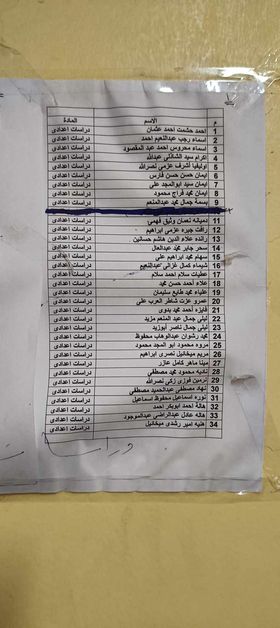 م الاسم المادة
1 احمد حشمت احمد عثمان دراسات اعدادى
2 اسماء رجب عبدالنعيم احمد دراسات اعدادى
3 اسماء محروس احمد عبد المقصود دراسات اعدادى
4 اكرام سيد الشاذلى عبدالله دراسات اعدادى
5 اوليفيا أشرف عزمى نصرالله دراسات اعدادى
6 ايمان حسن حسن فارس دراسات اعدادى
7 ايمان سيد ابوالمجد على دراسات اعدادى
8 ايمان محمد فراج محمود دراسات اعدادى
9 بسمة جمال محمد عبدالمنعم دراسات اعدادى
دميانه نعمان وثيق فهمى دراسات اعدادى
12 رأفت جبره عزمى ابراهيم دراسات اعدادى
13 رانده علاء الدين هاشم حسانين دراسات اعدادى
14 سحر جابر محمد عبدالعال دراسات اعدادى
15 سهام محمد ابراهيم على دراسات اعدادى
16 شيماء كمال غزالى عبدالنعيم دراسات اعدادى
17 عطيات سلام احمد سلام دراسات اعدادى
18 علاء احمد حسن محمد دراسات اعدادى
19 علياء محمد طايع سليمان دراسات اعدادى
20 عمرو عزت شاطر العرب على دراسات اعدادى
21 فايزه أحمد محمد بدوى دراسات اعدادى
22 ليلى جمال عبد المنعم مزيد دراسات اعدادى
23 ليلى جمال ناصر أبوزيد دراسات اعدادى
24 محمد رشوان عبدالوهاب محفوظ دراسات اعدادى
25 مروه محمود أبو المجد محمود دراسات اعدادى
26 مريم ميخائيل نصرى ابراهيم دراسات اعدادى
27 مينا ماهر كامل عازر دراسات اعدادى
28 ناديه محمود محمد مصطفى دراسات اعدادى
29 نرمين فوزى زكى نصرالله دراسات اعدادى
30 نهاد مصطفى عبدالحميد مصطفى دراسات اعدادى
31 نوره اسماعيل محفوظ اسماعيل دراسات اعدادى
32 هالة احمد ابوبكر احمد دراسات اعدادى
33 هالة عادل عبدالراضى عبدالموجود دراسات اعدادى
34 هنيه امير رشدى ميخائيل دراسات اعدادى